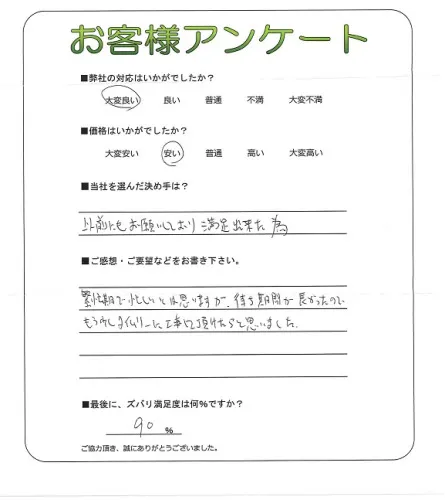 お客様アンケート
■弊社の対応はいかがでしたか?
大変良い 良い 普通 不満 大変不満
■価格はいかがでしたか?
大変安い 安い 普通 高い 大変高い
■当社を選んだ決め手は?
以前にもお願いしており満足出来た為
■ご感想・ご要望などをお書き下さい。
繁忙期で忙しいとは思いますが、待ち期間が長かったので、
もう少しタイムリーに工事して頂けたらと思いました。
■最後に、ズバリ満足度は何%ですか?
90 %
ご協力頂き、誠にありがとうございました。